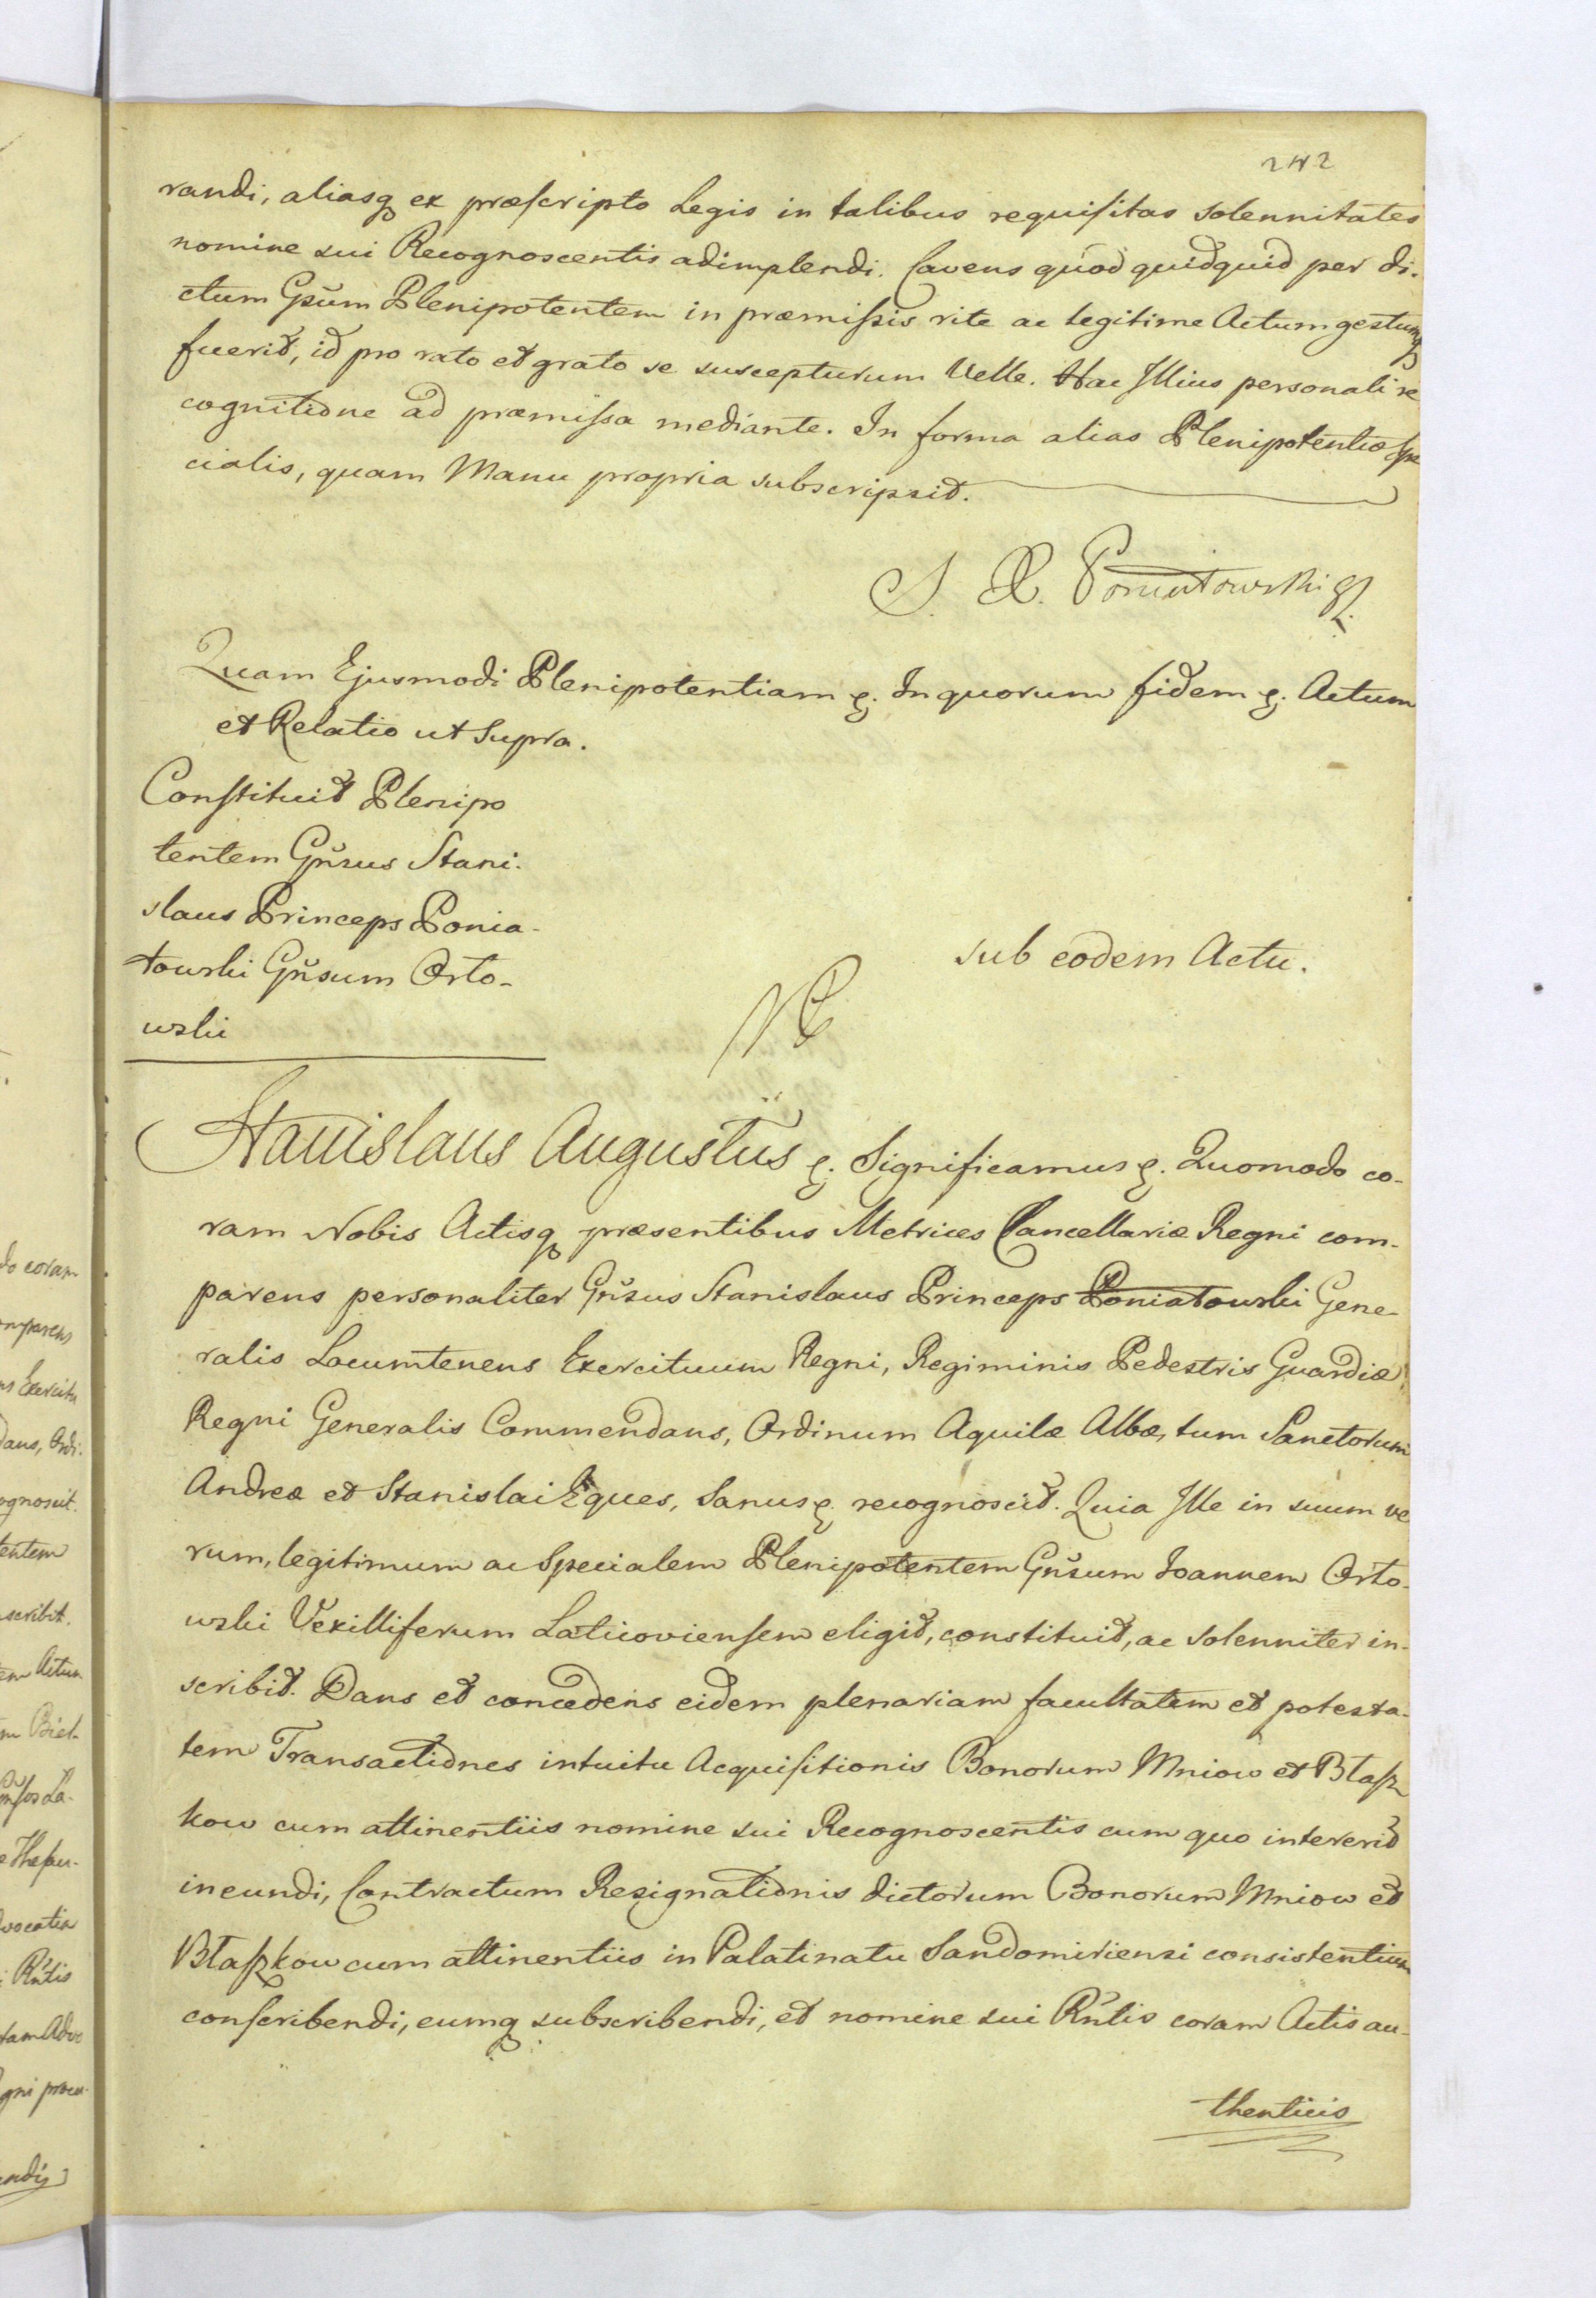 242
randi, aliasq3 ex præscripto Legis in talibus requisitas solennitates
nomine sui Recognoscentis adimplendi. Cavens quod quidquid per di-
ctum Gsũm Plenipotentem in præmissis rite ac legitime Actum gestumq3
fuerit, id pro rato et grato se suscepturum Velle. Hac Illius personali re
cognitione ad præmissa mediante. In forma alias Plenipotentiæ Spe
cialis, quam Manu propria subscripsit.
S. X. Poniatowski
Quam Ejusmodi Plenipotentiam &. In quorum fidem &. Actum
et Relatio ut Supra.
Constituit Plenipo
tentem Gñsus Stani-
slaus Princeps Ponia-
towski Gñsum Orło-
wski
sub eodem Actu.
Stanislaus Augustus &. Significamus &. Quomodo co-
ram Nobis Actisq3 præsentibus Metrices Cancellariæ Regni com-
parens personaliter Gñsus Stanislaus Princeps Poniatowski Gene-
ralis Locumtenens Exercituum Regni, Regiminis Pedestris Guardiæ
Regni Generalis Commendans, Ordinum Aquilæ Albæ, tum Sanctorum
Andreæ et Stanislai Eques, Sanus &. recognoscit. Quia Ille in suum ve
rum, legitimum ac Specialem Plenipotentem Gñsum Joannem Orło-
wski Vexilliferum Laticoviensem eligit, constituit, ac solenniter in-
scribit. Dans et concedens eidem plenariam facultatem et potesta-
tem Transactiones intuitu Acquisitionis Bonorum Mniow et Błasz
kow cum attinentiis nomine sui Recognoscentis cum quo intererit
ineundi, Contractum Resignationis dictorum Bonorum Mniow et
Błaszkow cum attinentiis in Palatinatu Sandomiriensi consistentium
conscribendi, eumq3 subscribendi, et nomine sui Rñtis coram Actis au-
thenticis